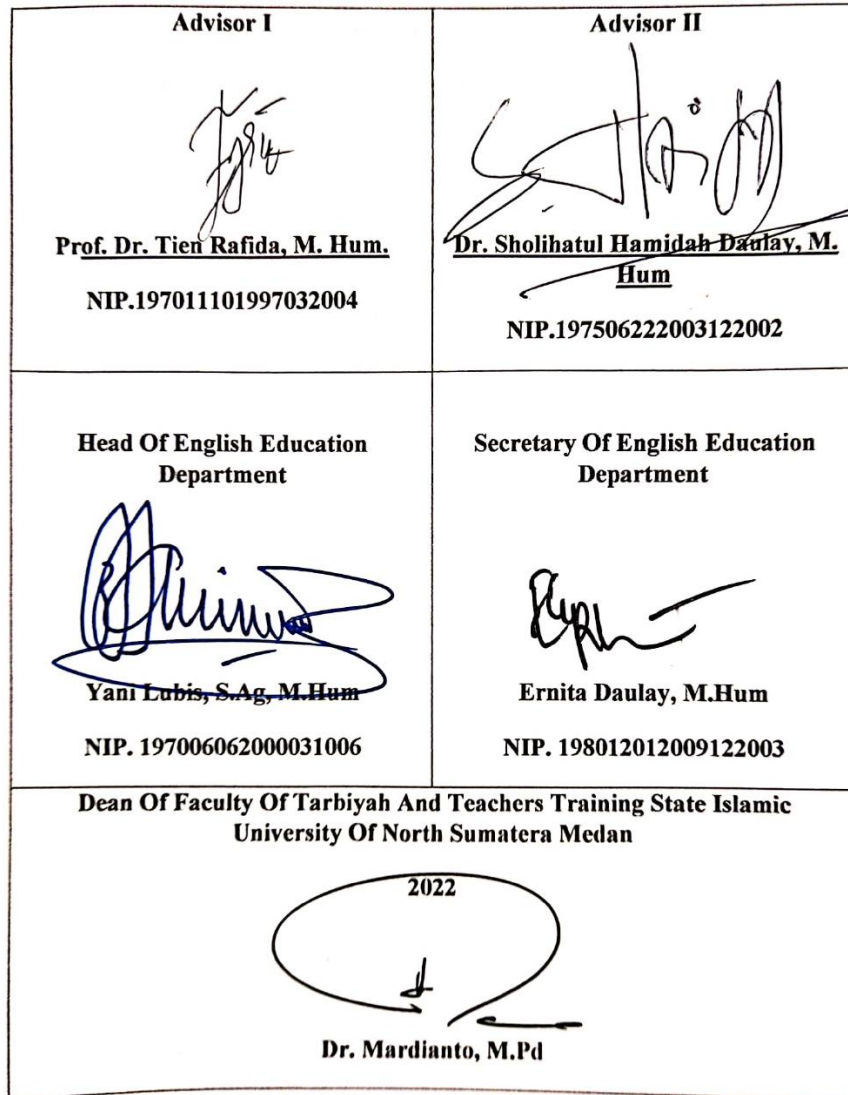 Advisor I
Prof. Dr. Tien Rafida, M. Hum.
NIP.197011101997032004
Advisor II
Dr. Sholihatul Hamidah Daulay, M.
Hum
NIP.197506222003122002
Head Of English Education
Department
Yani Lubis, S.Ag, M.Hum
NIP. 197006062000031006
Secretary Of English Education
Department
Ernita Daulay, M.Hum
NIP. 198012012009122003
Dean Of Faculty Of Tarbiyah And Teachers Training State Islamic
University Of North Sumatera Medan
2022
Dr. Mardianto, M.Pd